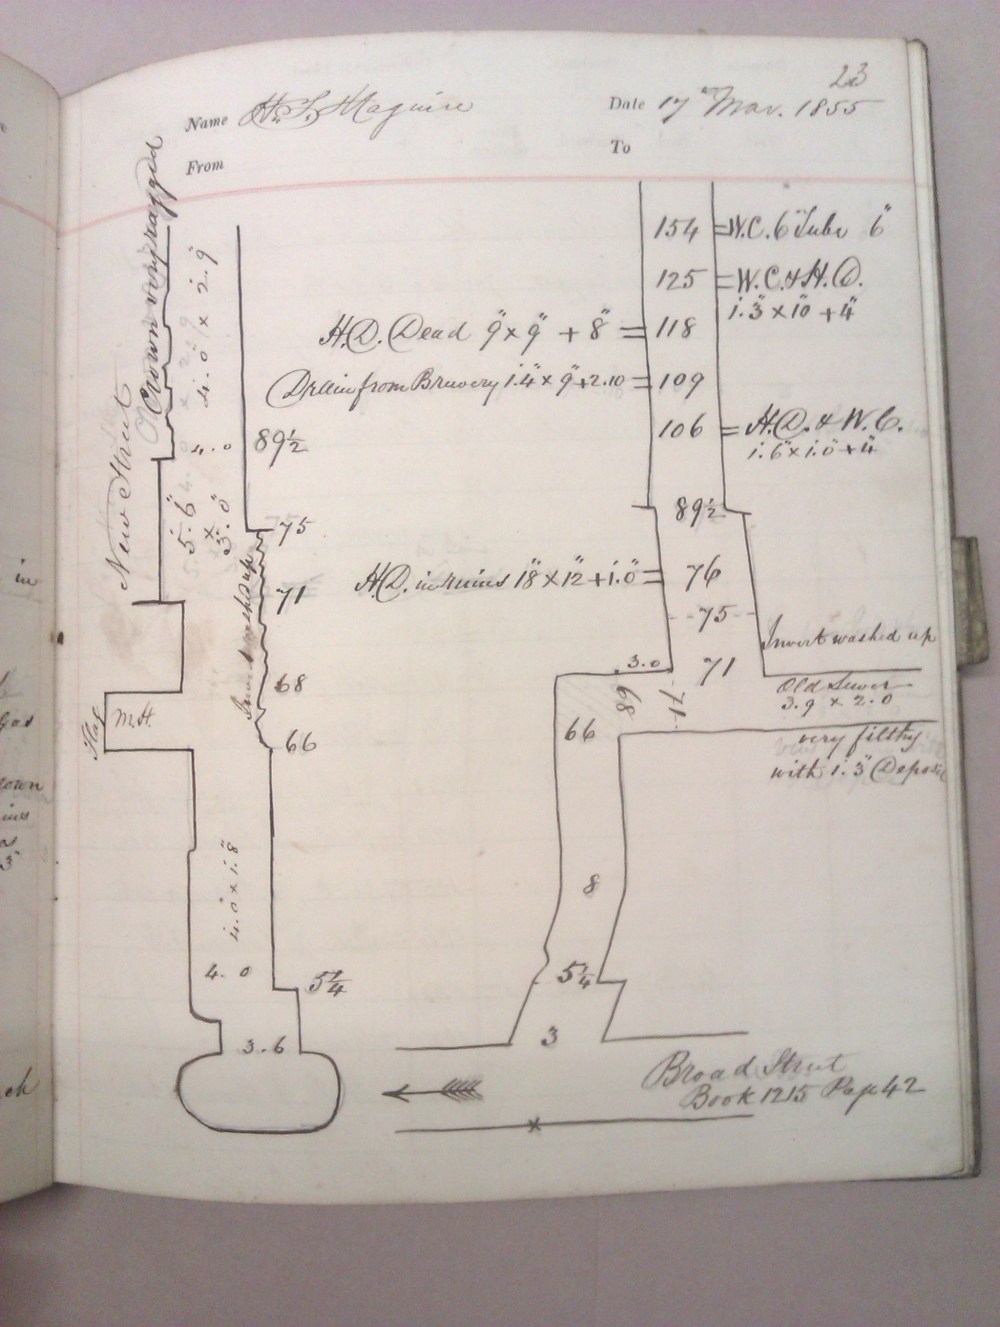 23
Name H. S. Maguire
Date 17th Mar. 1855
From
To
Crown very ragged
New Street
4.0 x 2.9
4.0
89½
5.6" x 3.0"
75
71
Invert washed up
68
66
Flag
M.H.
4.0 x 1.8
4.0
5¼
3.6
154 W.C. 6" Tube 6"
125 W.C. & H.D.
1.3" x 10" + 4"
H.D. Dead 9" x 9" + 8" 118
Drain from Brewery 1.4" x 9" + 2.10 109
106 H.D. & W.C.
1.6" x 1.0" + 4"
89½
H.D. in ruins 18" x 12" + 1.0" 76
75
Invert washed up
3.0 71
68
71
Old Sewer
3.9 x 2.0
66
very filthy
with 1.3" Deposit
8
5¼
3
Broad Street
Book 1215 Page 42
x
in
Gas
own
ins
as
3
ch